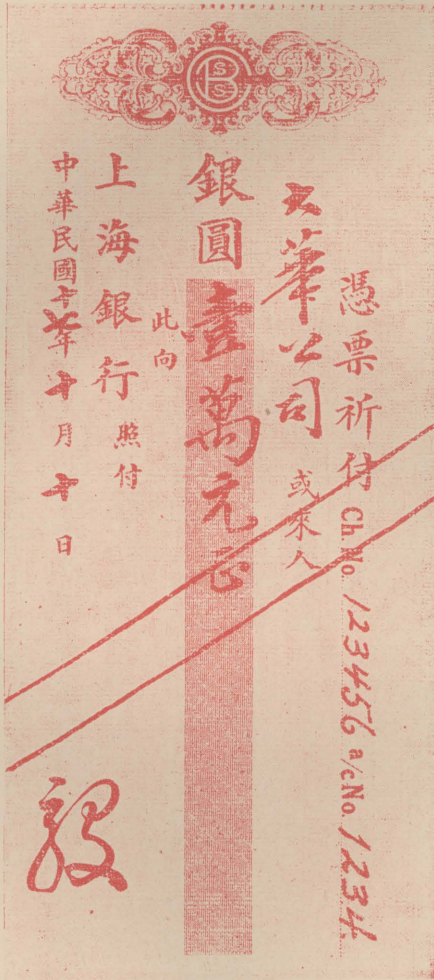 憑票祈付 Ch. No. 123456 a/c No. 1234
大華公司 或來人
銀圓壹萬元正
此向
上海銀行 照付
中華民國十七年十月十日